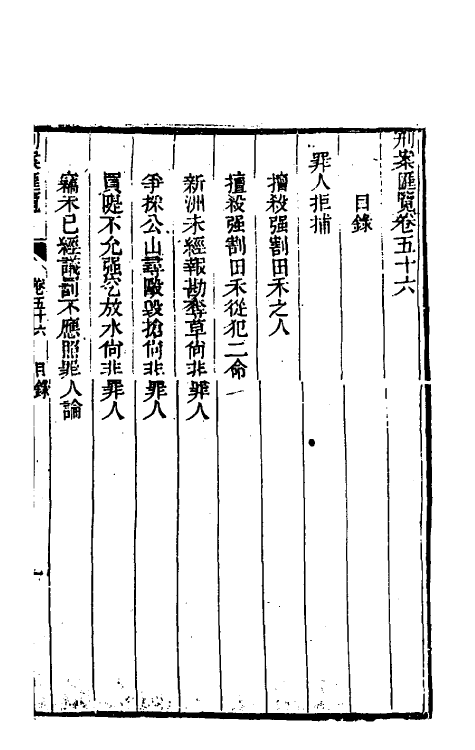 刑案匯覽卷五十六
目錄
罪人拒捕
擅殺强割田禾之人
擅殺强割田禾從犯二命
新洲未經報勘奪草尚非罪人
爭採公山尋毆毀搶尚非罪人
買隄不允强挖放水尚非罪人
竊禾已經議罰不應照罪人論
刑案匯覽 卷五十六 目錄 一